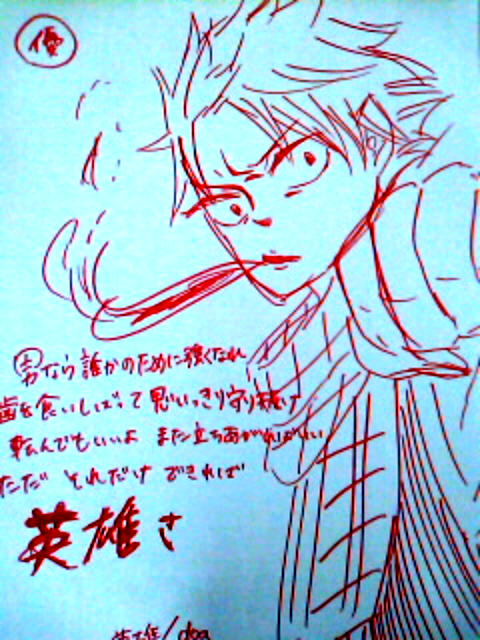 優
男なら誰かのために強くなれ
歯を食いしばって思いっきり守り続け
転んでもいいよ また立ちあがればいい
ただ それだけ できれば
英雄さ
英雄/doa